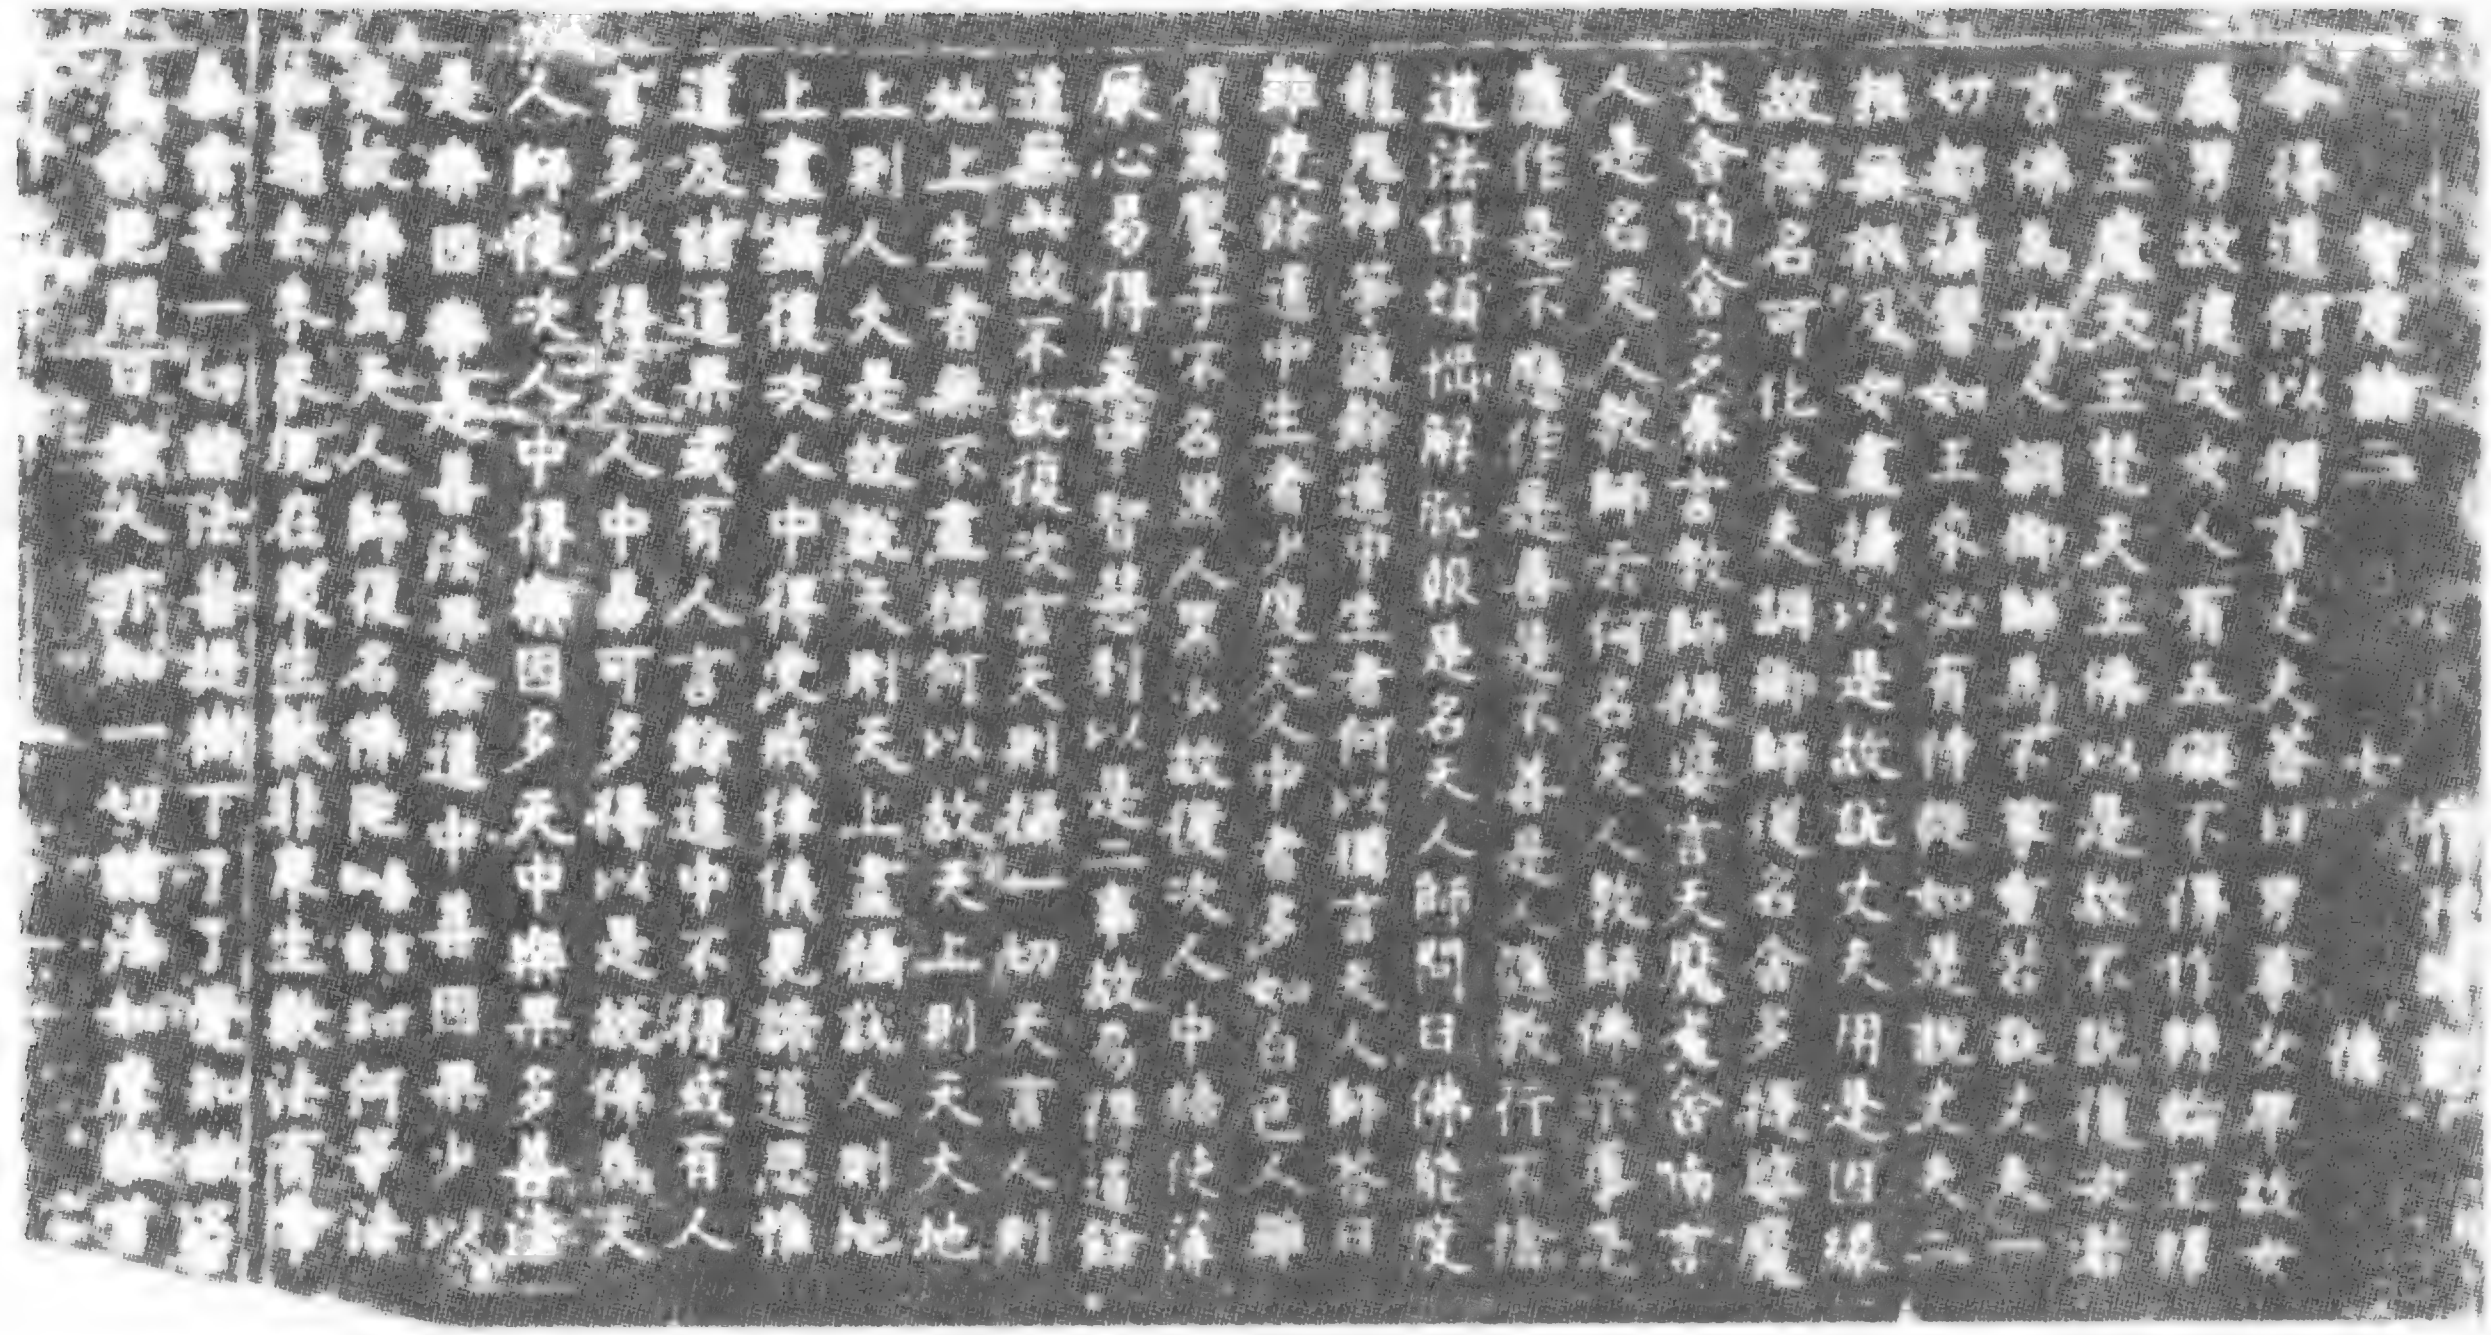 智度論二 七
得道何以獨言丈夫答曰男尊女卑故女
屬男故復次女人有五礙不得作轉輪王釋
天王魔天王梵天王佛以是故不說復次若
言佛為女人調御師為不尊重若說丈夫一
切都攝譬如王來必有侍從如是說丈夫二
根無根及女盡攝以是故說丈夫用是因緣
故佛名可化丈夫調御師復名舍多提婆魔
㝹舍喃舍多秦言教師提婆言天魔㝹舍喃言
人是名天人教師云何名天人教師佛示導是
應作是不應作是善是不善是人隨教行不捨
道法得煩惱解脫報是名天人師問曰佛能度
龍鬼神等墮餘道中生者何以獨言天人師答曰
度餘道中生者少度天人中生者多如白色人雖
有黑黶子不名黑人黑少故復次人中結使薄
厭心易得天中智慧利以是二處易得道餘
道故不說復次言天則攝一切天言人則
地上生者盡攝何以故天上則天大地
上則人大是故說天則天上盡攝說人則地
上盡攝復次人中得受戒律儀見諦道思惟
道及諸道果或有人言餘道中不得或有人
言多少得天人中易可多得以是故佛為天
人師復次人中得樂因多天中樂果多善法
是樂因樂是善法果餘道中善因果少以
是故佛為天人師復名佛陀知何等法
過去未來現在眾生數非眾生數有常
無常等一切諸法菩提樹下了了覺知故名
為佛陀問曰餘人亦知一切諸法如摩醯首